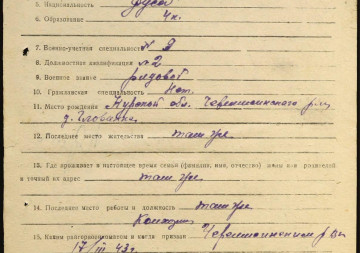 5. Национальность русс
6. Образование 4 к.
7. Военно-учетная специальность № 9
8. Должностная квалификация № 2
9. Военное звание рядовой
10. Гражданская специальность Нет.
11. Место рождения Курской обл. Черемисиновского р-на
д.
12. Последнее место жительства там же
13. Где проживает в настоящее время семья (фамилия, имя, отчество) жены или родителей
и точный их адрес там же
14. Последнее место работы и должность там же
Колхозник
15. Каким райгорвоенкоматом и когда призван Черемисиновским РВК
17/III 43 г.